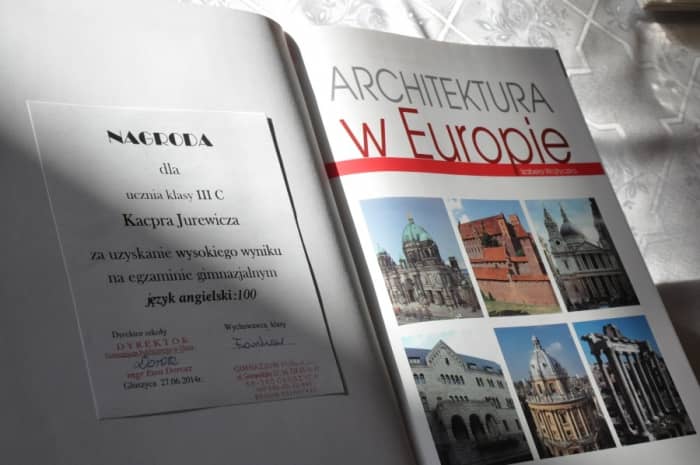 NAGRODA
dla
ucznia klasy III C
Kacpra Jurewicza
za uzyskanie wysokiego wyniku
na egzaminie gimnazjalnym
język angielski:100
Dyrektor szkoły
DYREKTOR
Wychowawca klasy
GIMNAZJUM
Głuszyca 27.06 2014r.
ARCHITEKTURA
w Europie